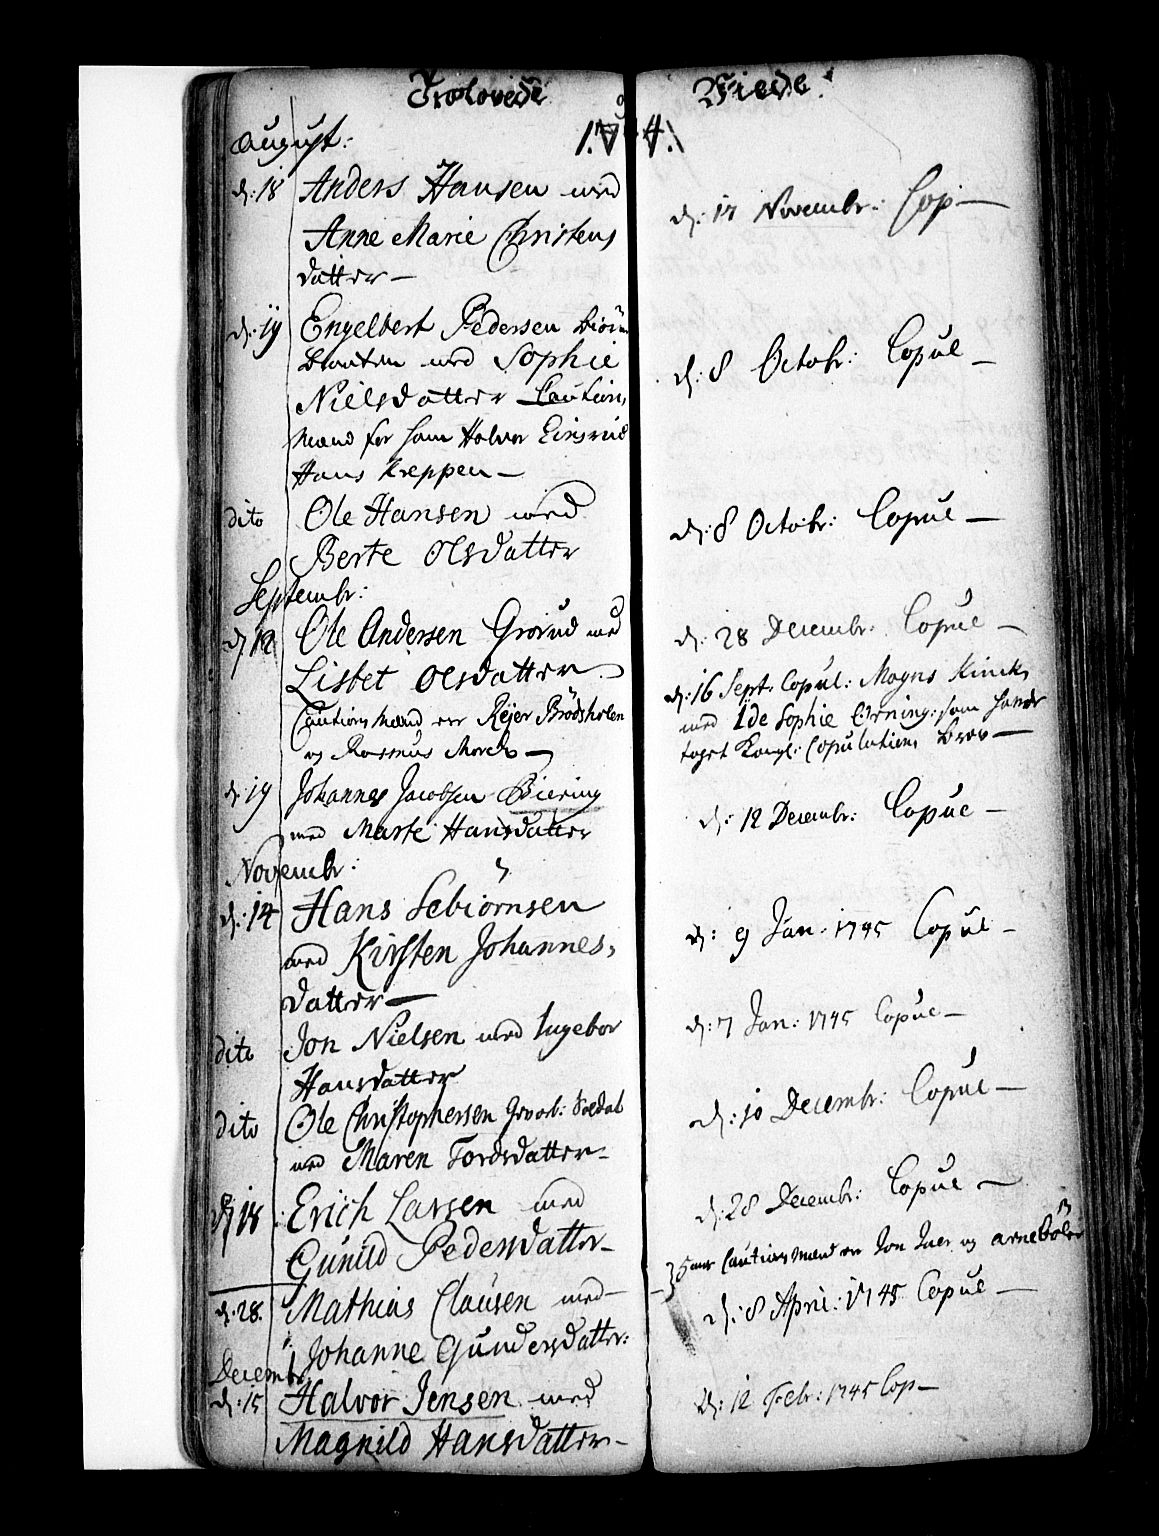 Trolovede og Viede.
1744.
August:
d: 18 Anders Hansen med
Anne Marie Christens
datter —
d: 17 Novembr: Cop —
d: 19 Engelbert Pedersen
med Sophie
Nielsdatter — Cautions
Mænd for ham Halvor Einsrud
Hans Kreppen —
d: 8 Octobr: Copul —
dito Ole Hansen med
Berte Olsdatter
d: 8 Octobr: Copul —
Septembr:
d: 12 Ole Andersen Grorud med
Lisbet Olsdatter
Cautions Mænd er Rejer Brödsholen
og Rasmus Morch —
d: 28 Decembr: Copul —
d: 16 Sept: Copul: Mogns Kinck,
med Ide Sophie Örning: som hafde
taget Kongl: Copulations brev —
d: 19 Johannes Jacobsen Biering
med Marte Hansdatter
d: 12 Decembr: Copul —
Novembr:
d: 14 Hans Sebiörnsen
med Kirsten Johannes,
datter —
d: 9 Jan: 1745 Copul —
dito Jon Nielsen med Ingebor
Hansdatter
d: 7 Jan: 1745 Copul —
dito Ole Christophersen Gevorb: Soldat
med Maren Tordsdatter —
d: 10 Decembr: Copul —
d: 18 Erich Larsen med
Gunild Pedersdatter —
d: 28 Decembr: Copul —
hans Cautions Mænd er Jon Juer og arne Böler
d: 28. Mathias Clausen med —
Johanne Gundersdatter:
d: 8 April: 1745 Copul —
Decembr
d: 15 Halvor Jensen med
Magnild Hansdatter —
d: 12 Febr: 1745 Cop —